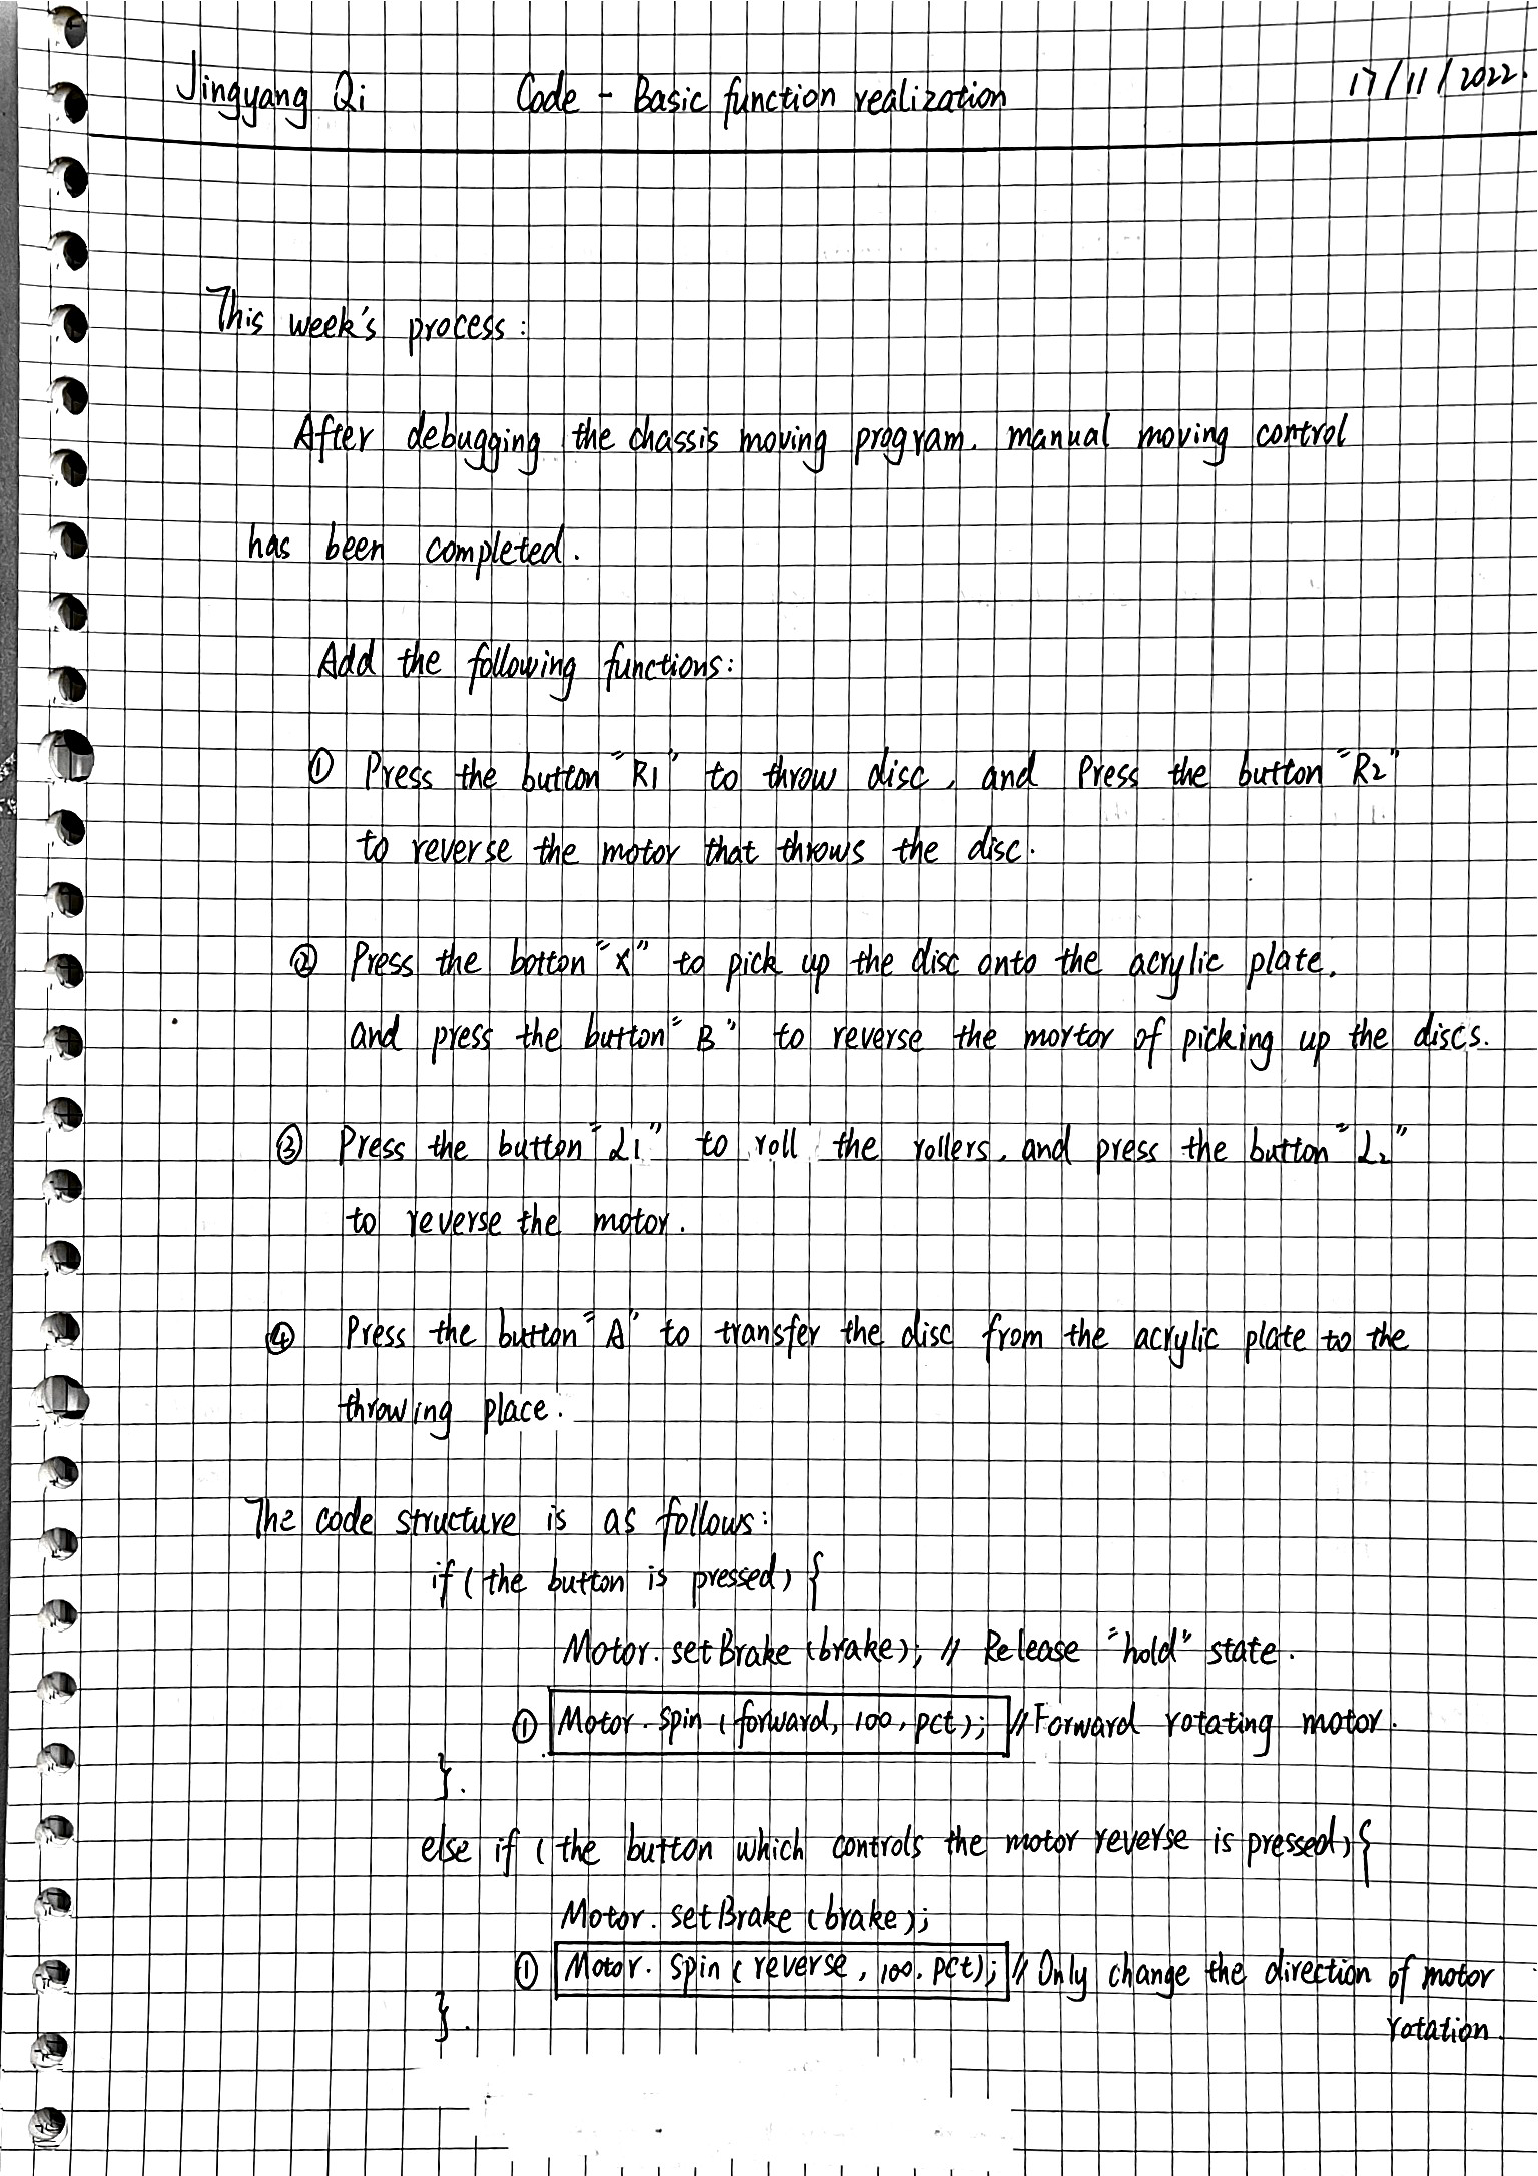 Jingyang Qi Code - Basic function realization 17/11/2022.
This week's process:
After debugging the chassis moving program, manual moving control
has been completed.
Add the following functions:
① Press the button "R1" to throw disc, and Press the button "R2"
to reverse the motor that throws the disc.
② Press the botton "X" to pick up the disc onto the acrylic plate,
and press the button "B" to reverse the mortor of picking up the discs.
③ Press the button "L1" to roll the rollers, and press the button "L2"
to reverse the motor.
④ Press the button "A" to transfer the disc from the acrylic plate to the
throwing place.
The code structure is as follows:
if (the button is pressed) {
Motor.setBrake (brake); // Release "hold" state.
① Motor.spin (forward, 100, pct); // Forward rotating motor.
}.
else if (the button which controls the motor reverse is pressed) {
Motor.setBrake (brake);
① Motor.spin (reverse, 100, pct); // Only change the direction of motor
rotation.
}.